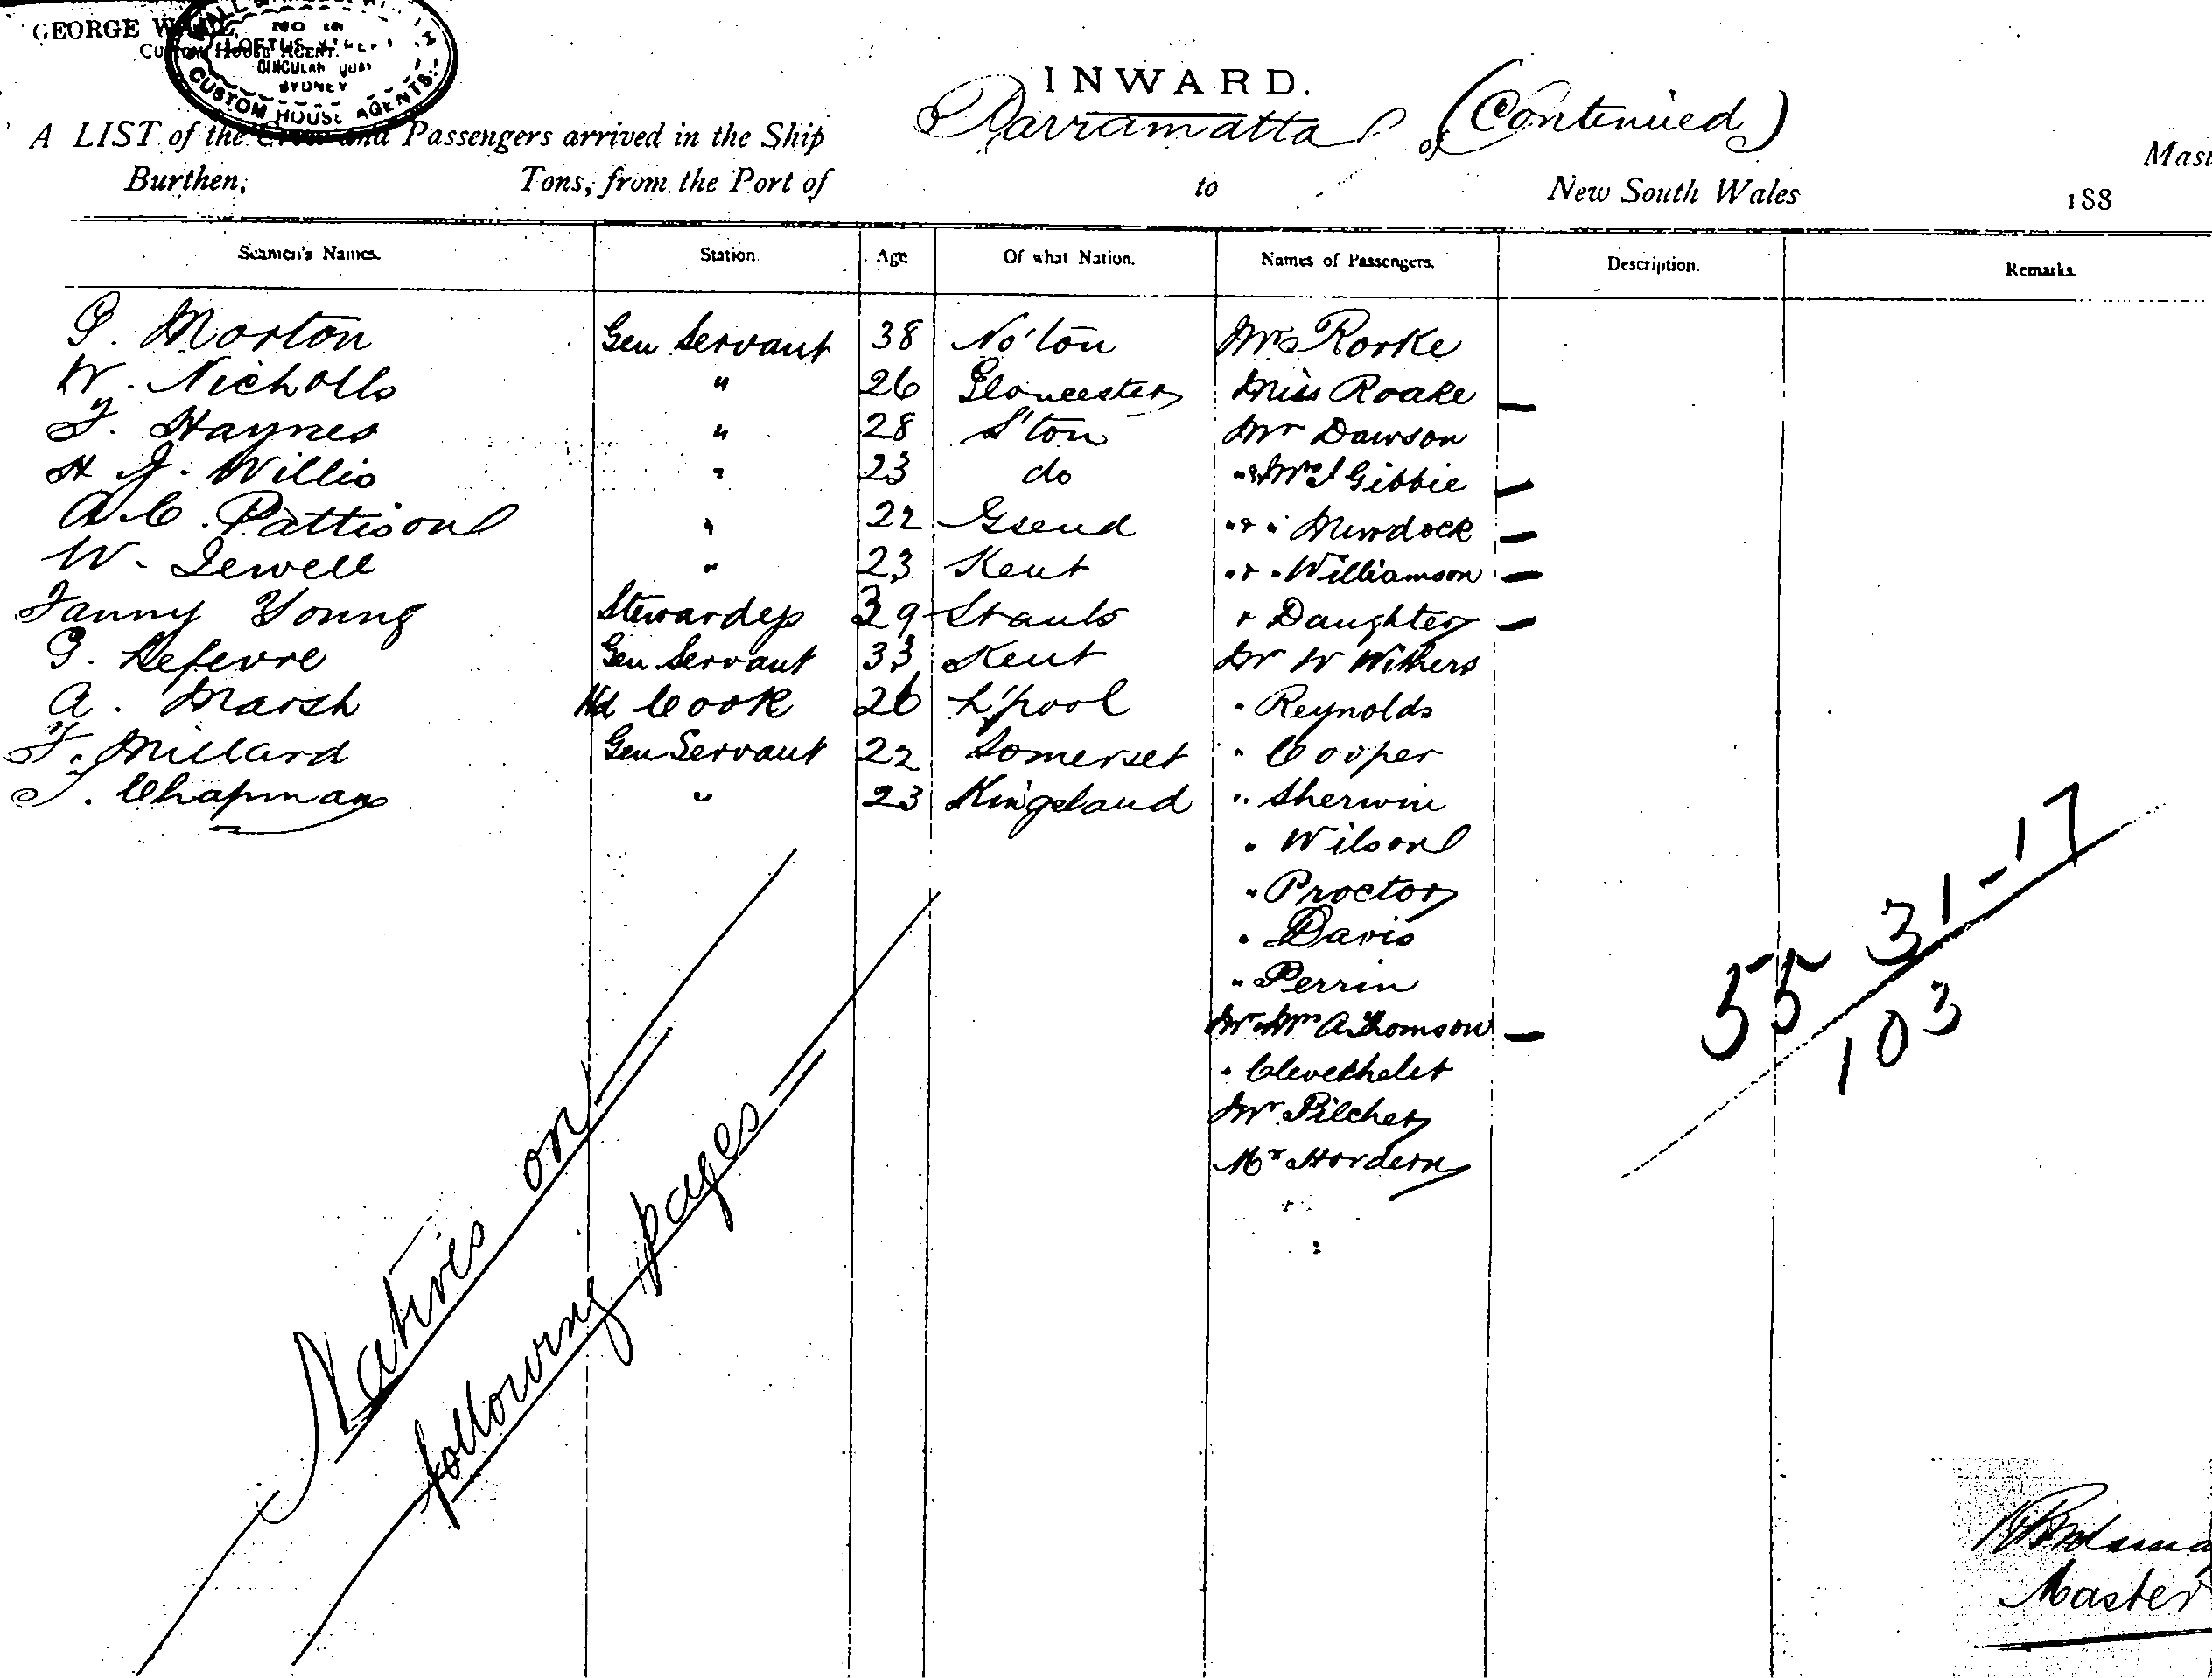 GEORGE
CUSTOM HOUSE AGENT.
NO 10
LOFTUS STREET
CIRCULAR QUAY
SYDNEY
CUSTOM HOUSE AGENTS.
INWARD.
A LIST of the Crew and Passengers arrived in the Ship Parramatta (Continued) of Mast
Burthen, Tons, from the Port of to New South Wales 188
Seamen's Names. Station. Age Of what Nation. Names of Passengers. Description. Remarks.
G. Morton Gen Servant 38 No'ton Mrs Rorke
W. Nicholls " 26 Gloucester Miss Roake —
F. Haynes " 28 S'ton Mr Dawson
H J. Willis " 23 do " & Mrs J Gibbie —
A. C. Pattison " 22 Gsend " & " Murdock —
W. Jewell " 23 Kent " & " Williamson —
Fanny Young Stewardess 39 & Daughter —
G. Lefevre Gen Servant 33 Kent Mr W Withers
A. Marsh Hd Cook 26 L'pool " Reynolds
F. Millard Gen Servant 22 Somerset " Cooper
T. Chapman " 23 Kingsland " Sherwin
" Wilson
" Proctor
" Davis
" Perrin
Mr & Mrs A. Thomson —
"
Mr Pilcher
Mr Hordern
55 31-17
103
Natives on
following pages
Master